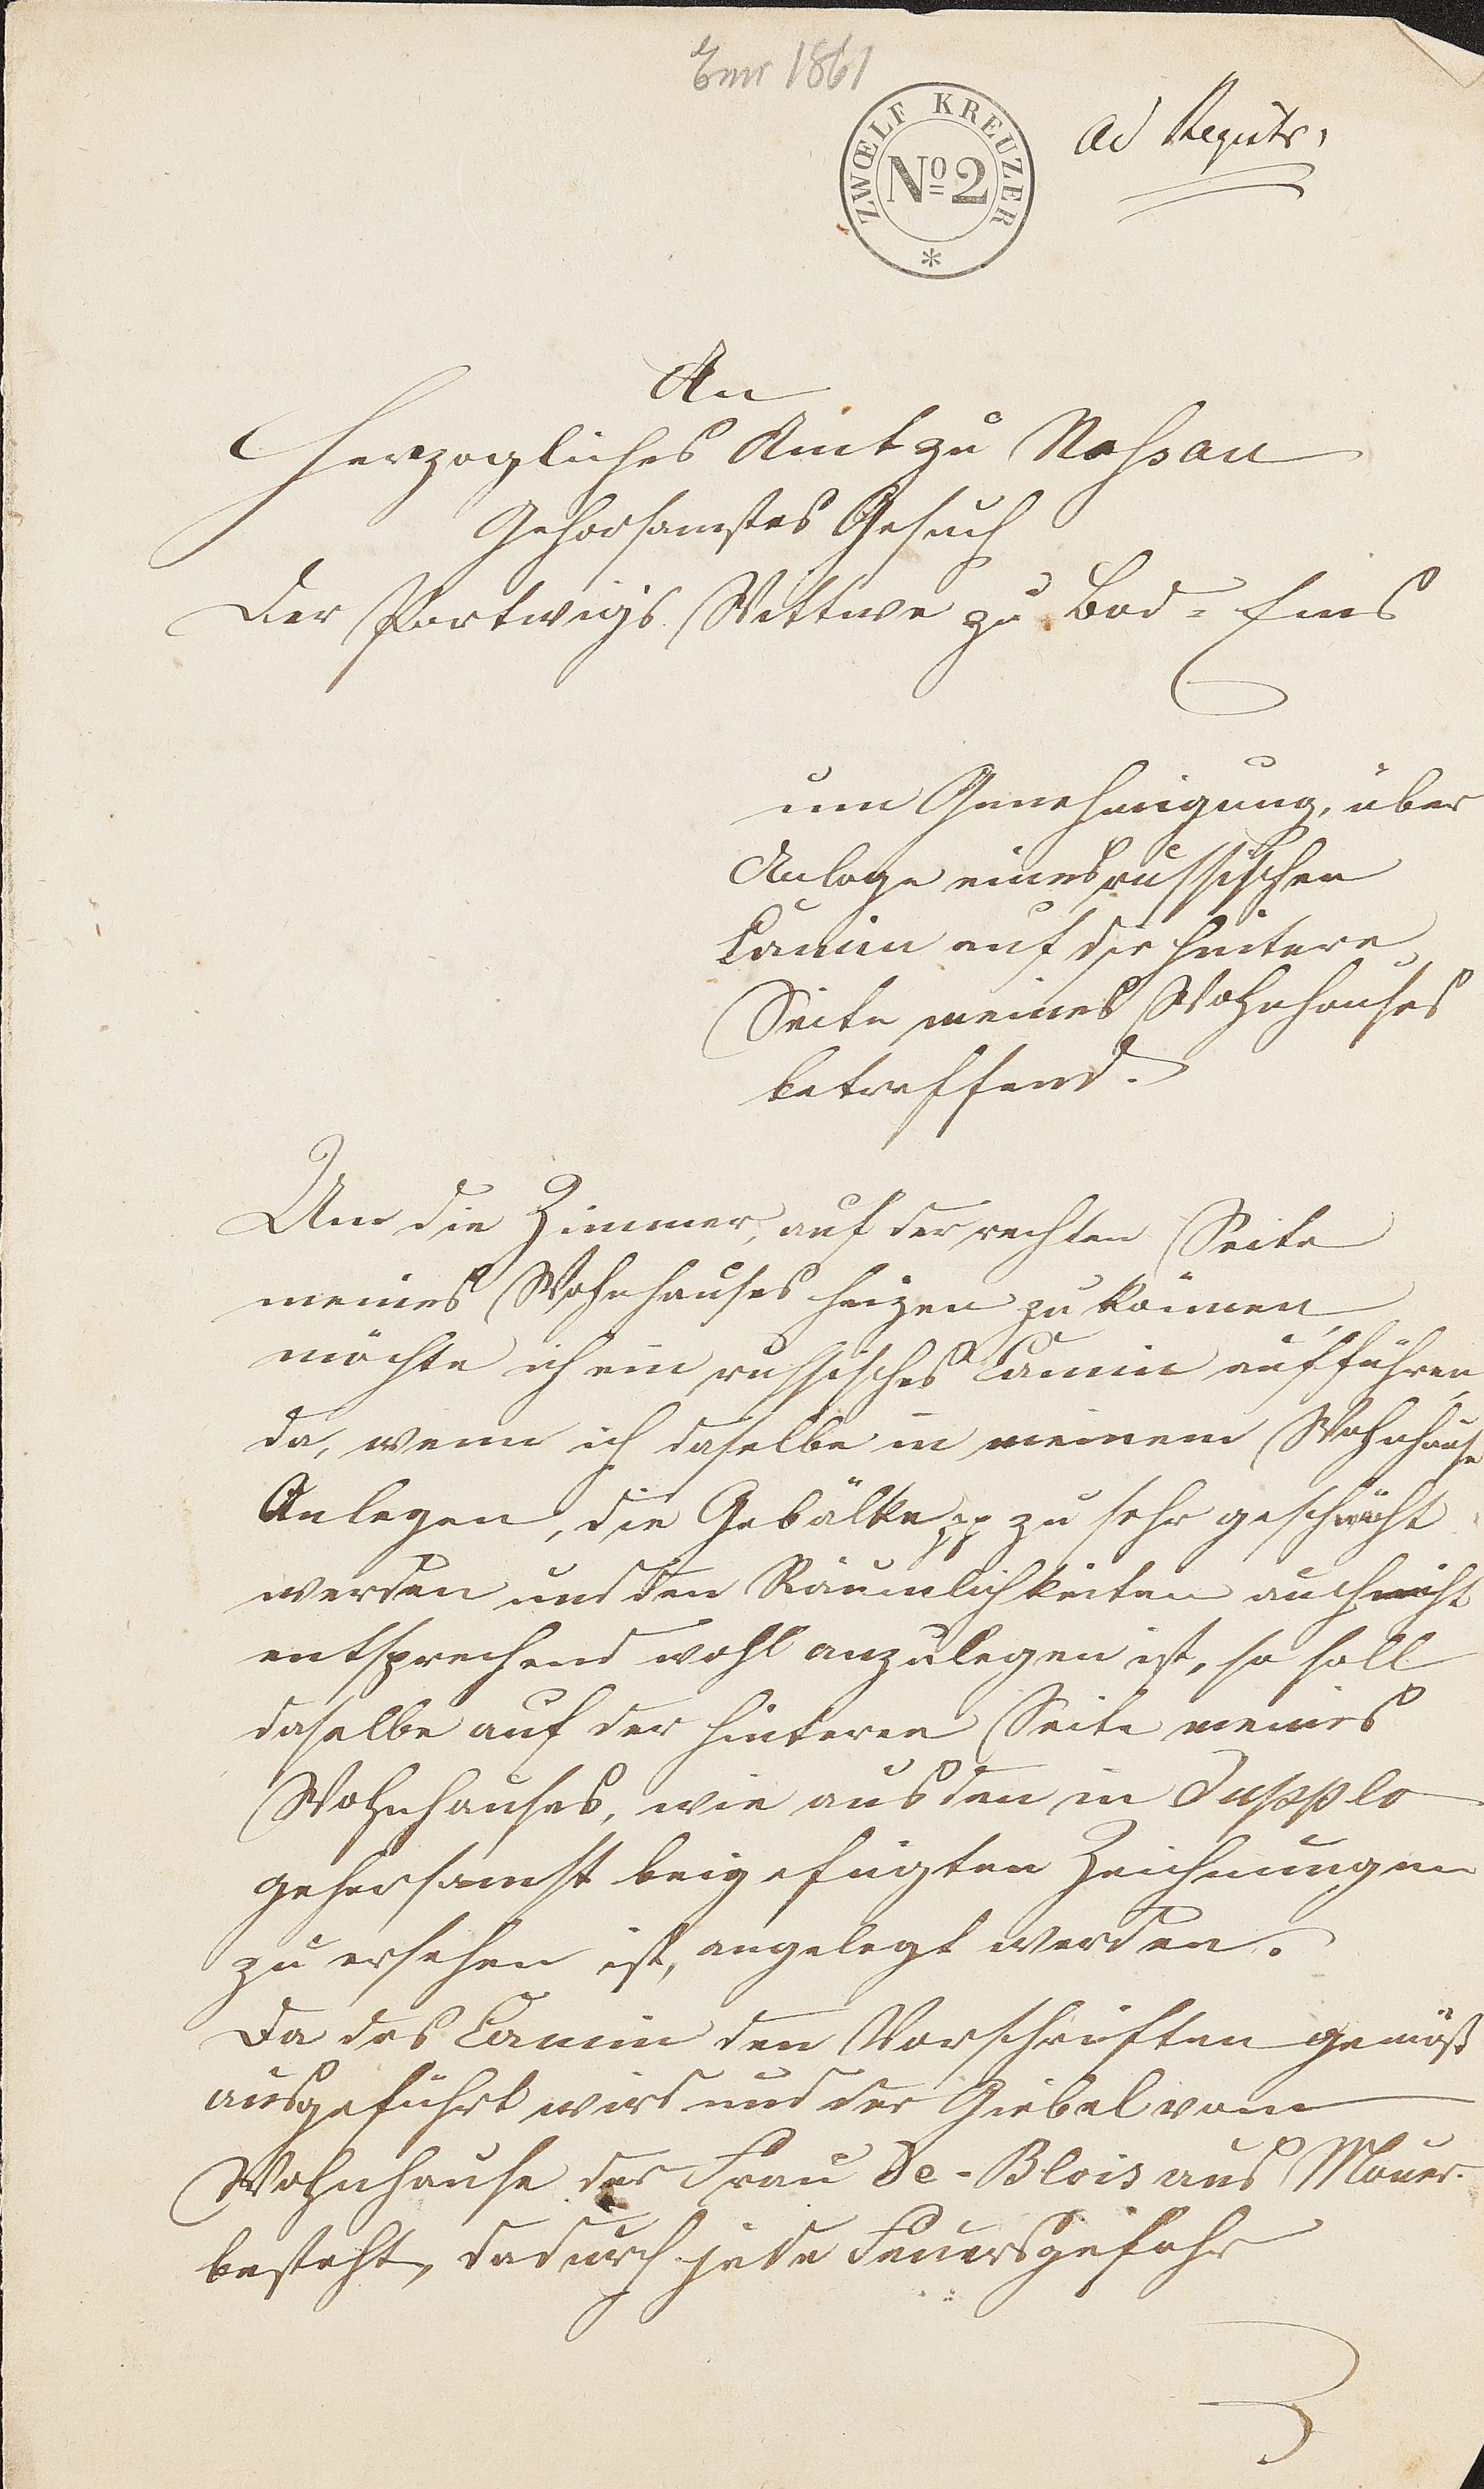 Ems 1861
ZWŒLF KREUZER
No 2
*
ad Registr.
An
Herzogliches Amt zu Nassau
Gehorsamstes Gesuch
Der Wittwe zu Bad-Ems
um Genehmigung, über
Anlage eines russischen
Camin auf die hintere
Seite meines Wohnhauses
betreffend.
Um die Zimmer, auf der rechten Seite
meines Wohnhauses heizen zu können,
möchte ich ein russisches Camin aufführen,
da, wenn ich daselbe in meinem Wohnhause
Anlegen, die Gebälke pp zu sehr geschwächt
werden und den Räumlichkeiten auch nicht
entsprechend wohl anzulegen ist, so soll
daselbe auf der hinteren Seite meines
Wohnhauses, wie aus den in Dupplo
gehorsamst beigefügten Zeichnungen
zu ersehen ist, angelegt werden.
Da das Camin den Vorschriften gemäß
ausgeführt wird und der Giebel vom
Wohnhause der Frau De-Blois aus Mauer
besteht, dadurch jede Feuersgefahr